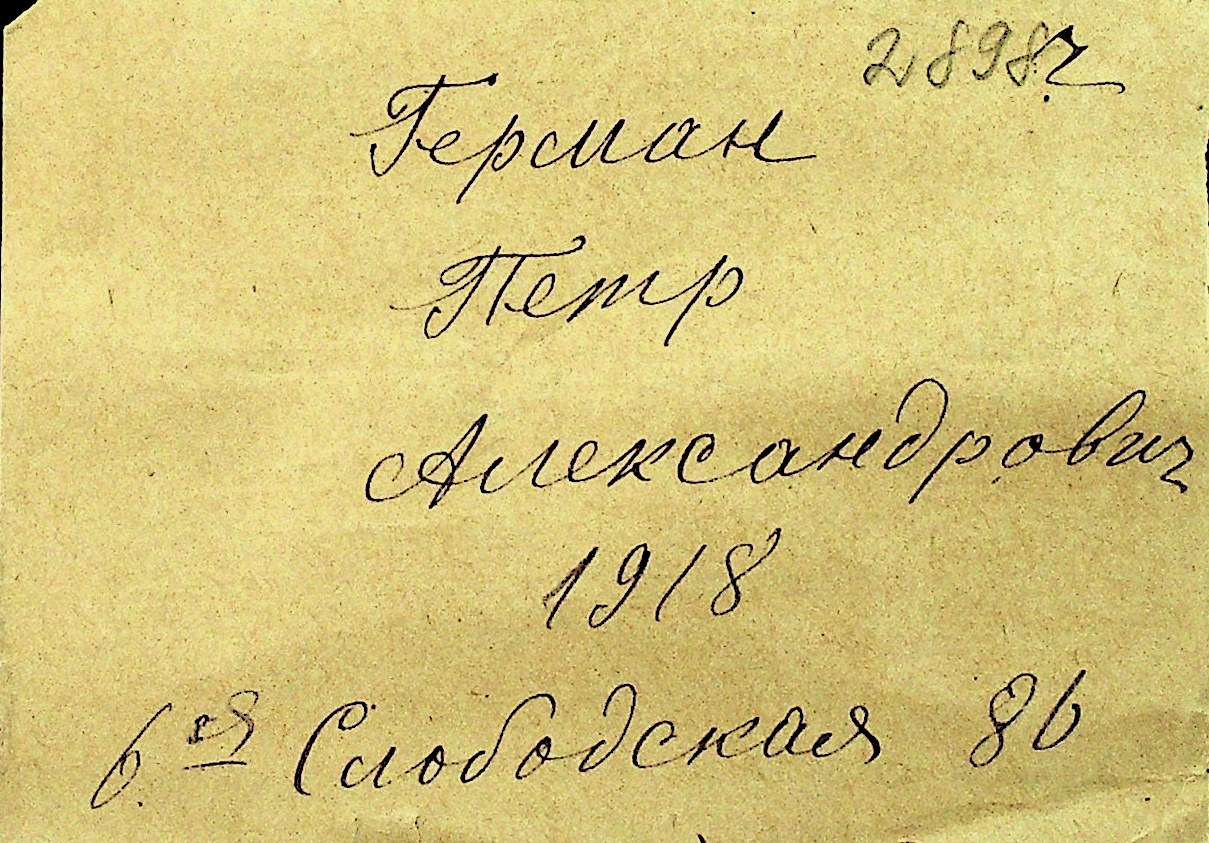 2898г
Герман
Петр
Александрович
1918
6ая Слободская 86